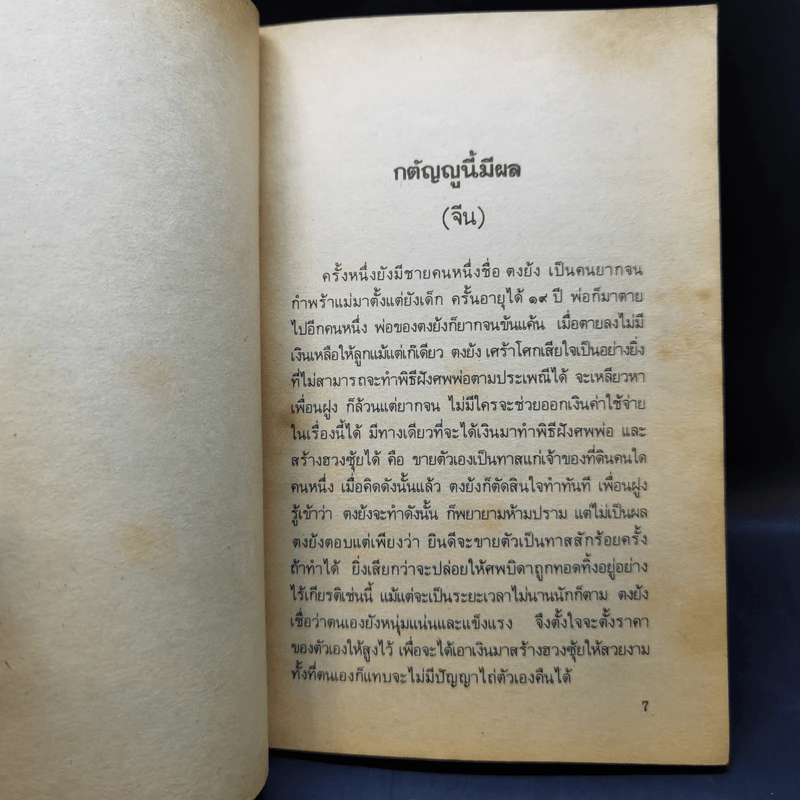 กตัญญูนี้มีผล
(จีน)
ครั้งหนึ่งยังมีชายคนหนึ่งชื่อ ตงย้ง เป็นคนยากจน
กำพร้าแม่มาตั้งแต่ยังเด็ก ครั้นอายุได้ ๑๙ ปี พ่อก็มาตาย
ไปอีกคนหนึ่ง พ่อของตงย้งก็ยากจนข้นแค้น เมื่อตายลงไม่มี
เงินเหลือให้ลูกแม้แต่เก๊เดียว ตงย้ง เศร้าโศกเสียใจเป็นอย่างยิ่ง
ที่ไม่สามารถจะทำพิธีฝังศพพ่อตามประเพณีได้ จะเหลียวหา
เพื่อนฝูง ก็ล้วนแต่ยากจน ไม่มีใครจะช่วยออกเงินค่าใช้จ่าย
ในเรื่องนี้ได้ มีทางเดียวที่จะได้เงินมาทำพิธีฝังศพพ่อ และ
สร้างฮวงซุ้ยได้ คือ ขายตัวเองเป็นทาสแก่เจ้าของที่ดินคนใด
คนหนึ่ง เมื่อคิดดังนั้นแล้ว ตงย้งก็ตัดสินใจทำทันที เพื่อนฝูง
รู้เข้าว่า ตงย้งจะทำดังนั้น ก็พยายามห้ามปราม แต่ไม่เป็นผล
ตงย้งตอบแต่เพียงว่า ยินดีจะขายตัวเป็นทาสสักร้อยครั้ง
ถ้าทำได้ ยิ่งเสียกว่าจะปล่อยให้ศพบิดาถูกทอดทิ้งอยู่อย่าง
ไร้เกียรติเช่นนี้ แม้แต่จะเป็นระยะเวลาไม่นานนักก็ตาม ตงย้ง
เชื่อว่าตนเองยังหนุ่มแน่นและแข็งแรง จึงตั้งใจจะตั้งราคา
ของตัวเองให้สูงไว้ เพื่อจะได้เอาเงินมาสร้างฮวงซุ้ยให้สวยงาม
ทั้งที่ตนเองก็แทบจะไม่มีปัญญาไถ่ตัวเองคืนได้
7